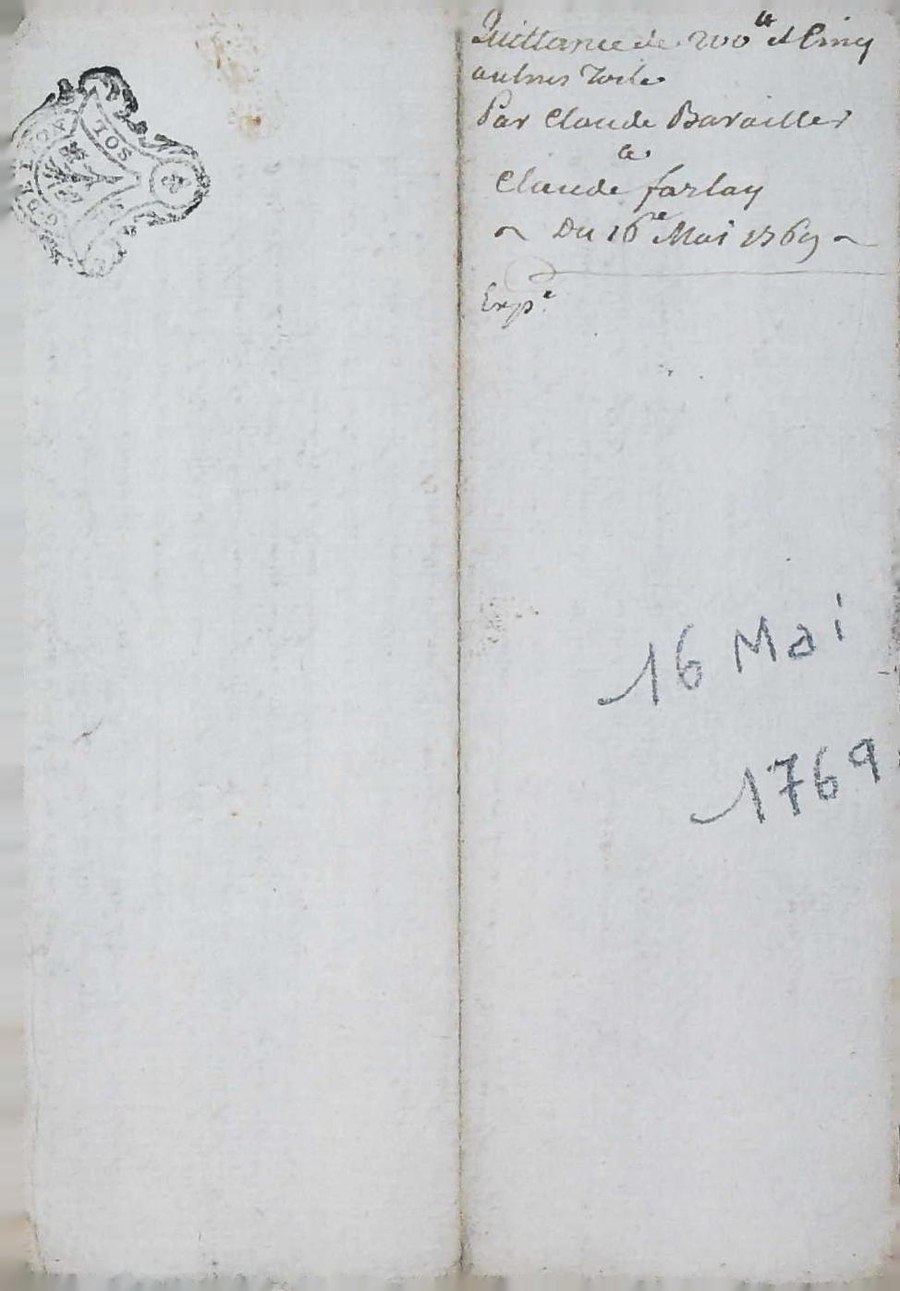 Quittance de 200ᵗᵗ et Cinq
aulnes Toile
Par Claude Barailler
a
Claude farlay
~ Du 16ᵉ Mai 1769 ~
Expᵉ
16 Mai
1769
SOL